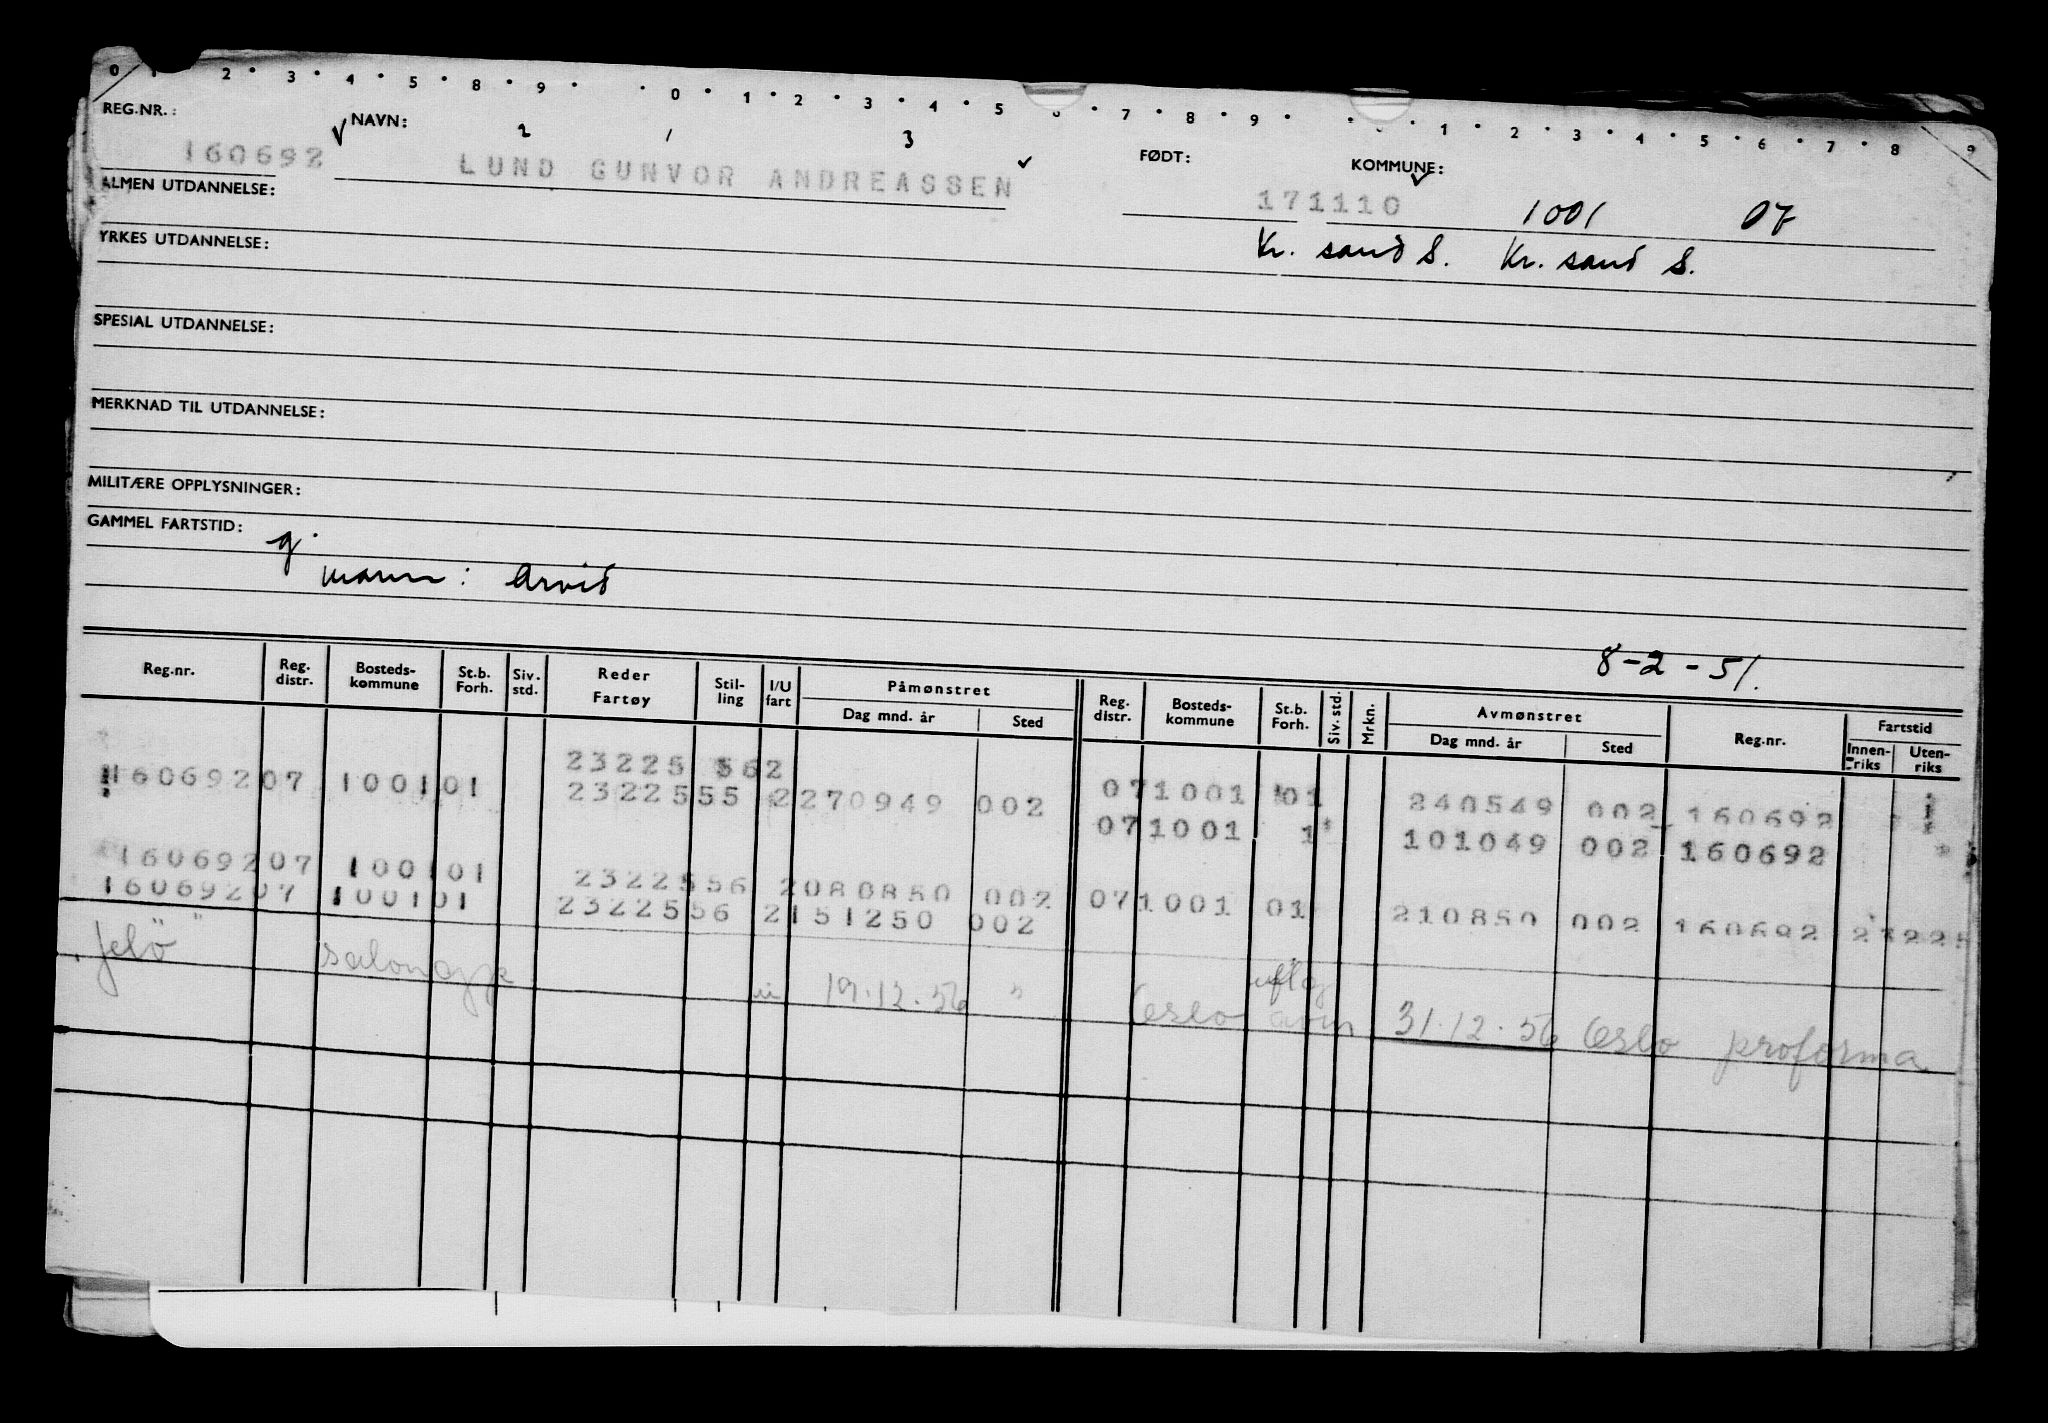 0 1 2 • 3 • 4 • 5 • 8 • 9 • • 0 • 1 • 2 • 3 • 4 • 5 • 6 • 7 • 8 • 9 • • 0 • 1 • 2 • 3 • 4 • 5 • 6 • 7 • 8 9
REG.NR.: NAVN: FØDT: KOMMUNE:
2 1 3
160692 LUND GUNVOR ANDREASSEN 171110 1001 07
ALMEN UTDANNELSE:
Kr. sand S. Kr. sand S.
YRKES UTDANNELSE:
SPESIAL UTDANNELSE:
MERKNAD TIL UTDANNELSE:
MILITÆRE OPPLYSNINGER:
GAMMEL FARTSTID:
g.
mann: Arvid
8-2-51.
Reg.nr. Reg. distr. Bosteds-kommune St.b. Forh. Siv. std. Reder Fartøy Stil-ling I/U fart Påmønstret Dag mnd. år Sted Reg. distr. Bosteds-kommune St.b. Forh. Siv. std. Mrkn. Avmønstret Dag mnd. år Sted Reg.nr. Fartstid Innen-riks Uten-riks
23225 562
160692 07 1001 01 2322555 2 270949 002 07 1001 01 240549 002 160692
07 1001 1 101049 002 160692
160692 07 1001 01 2322556 2 080850 002 07 1001 01 210850 002 160692
160692 07 1001 01 2322556 2 151250 002
"Jelö" salongpk 19.12.56 " Oslo 31.12.56 Oslo proforma